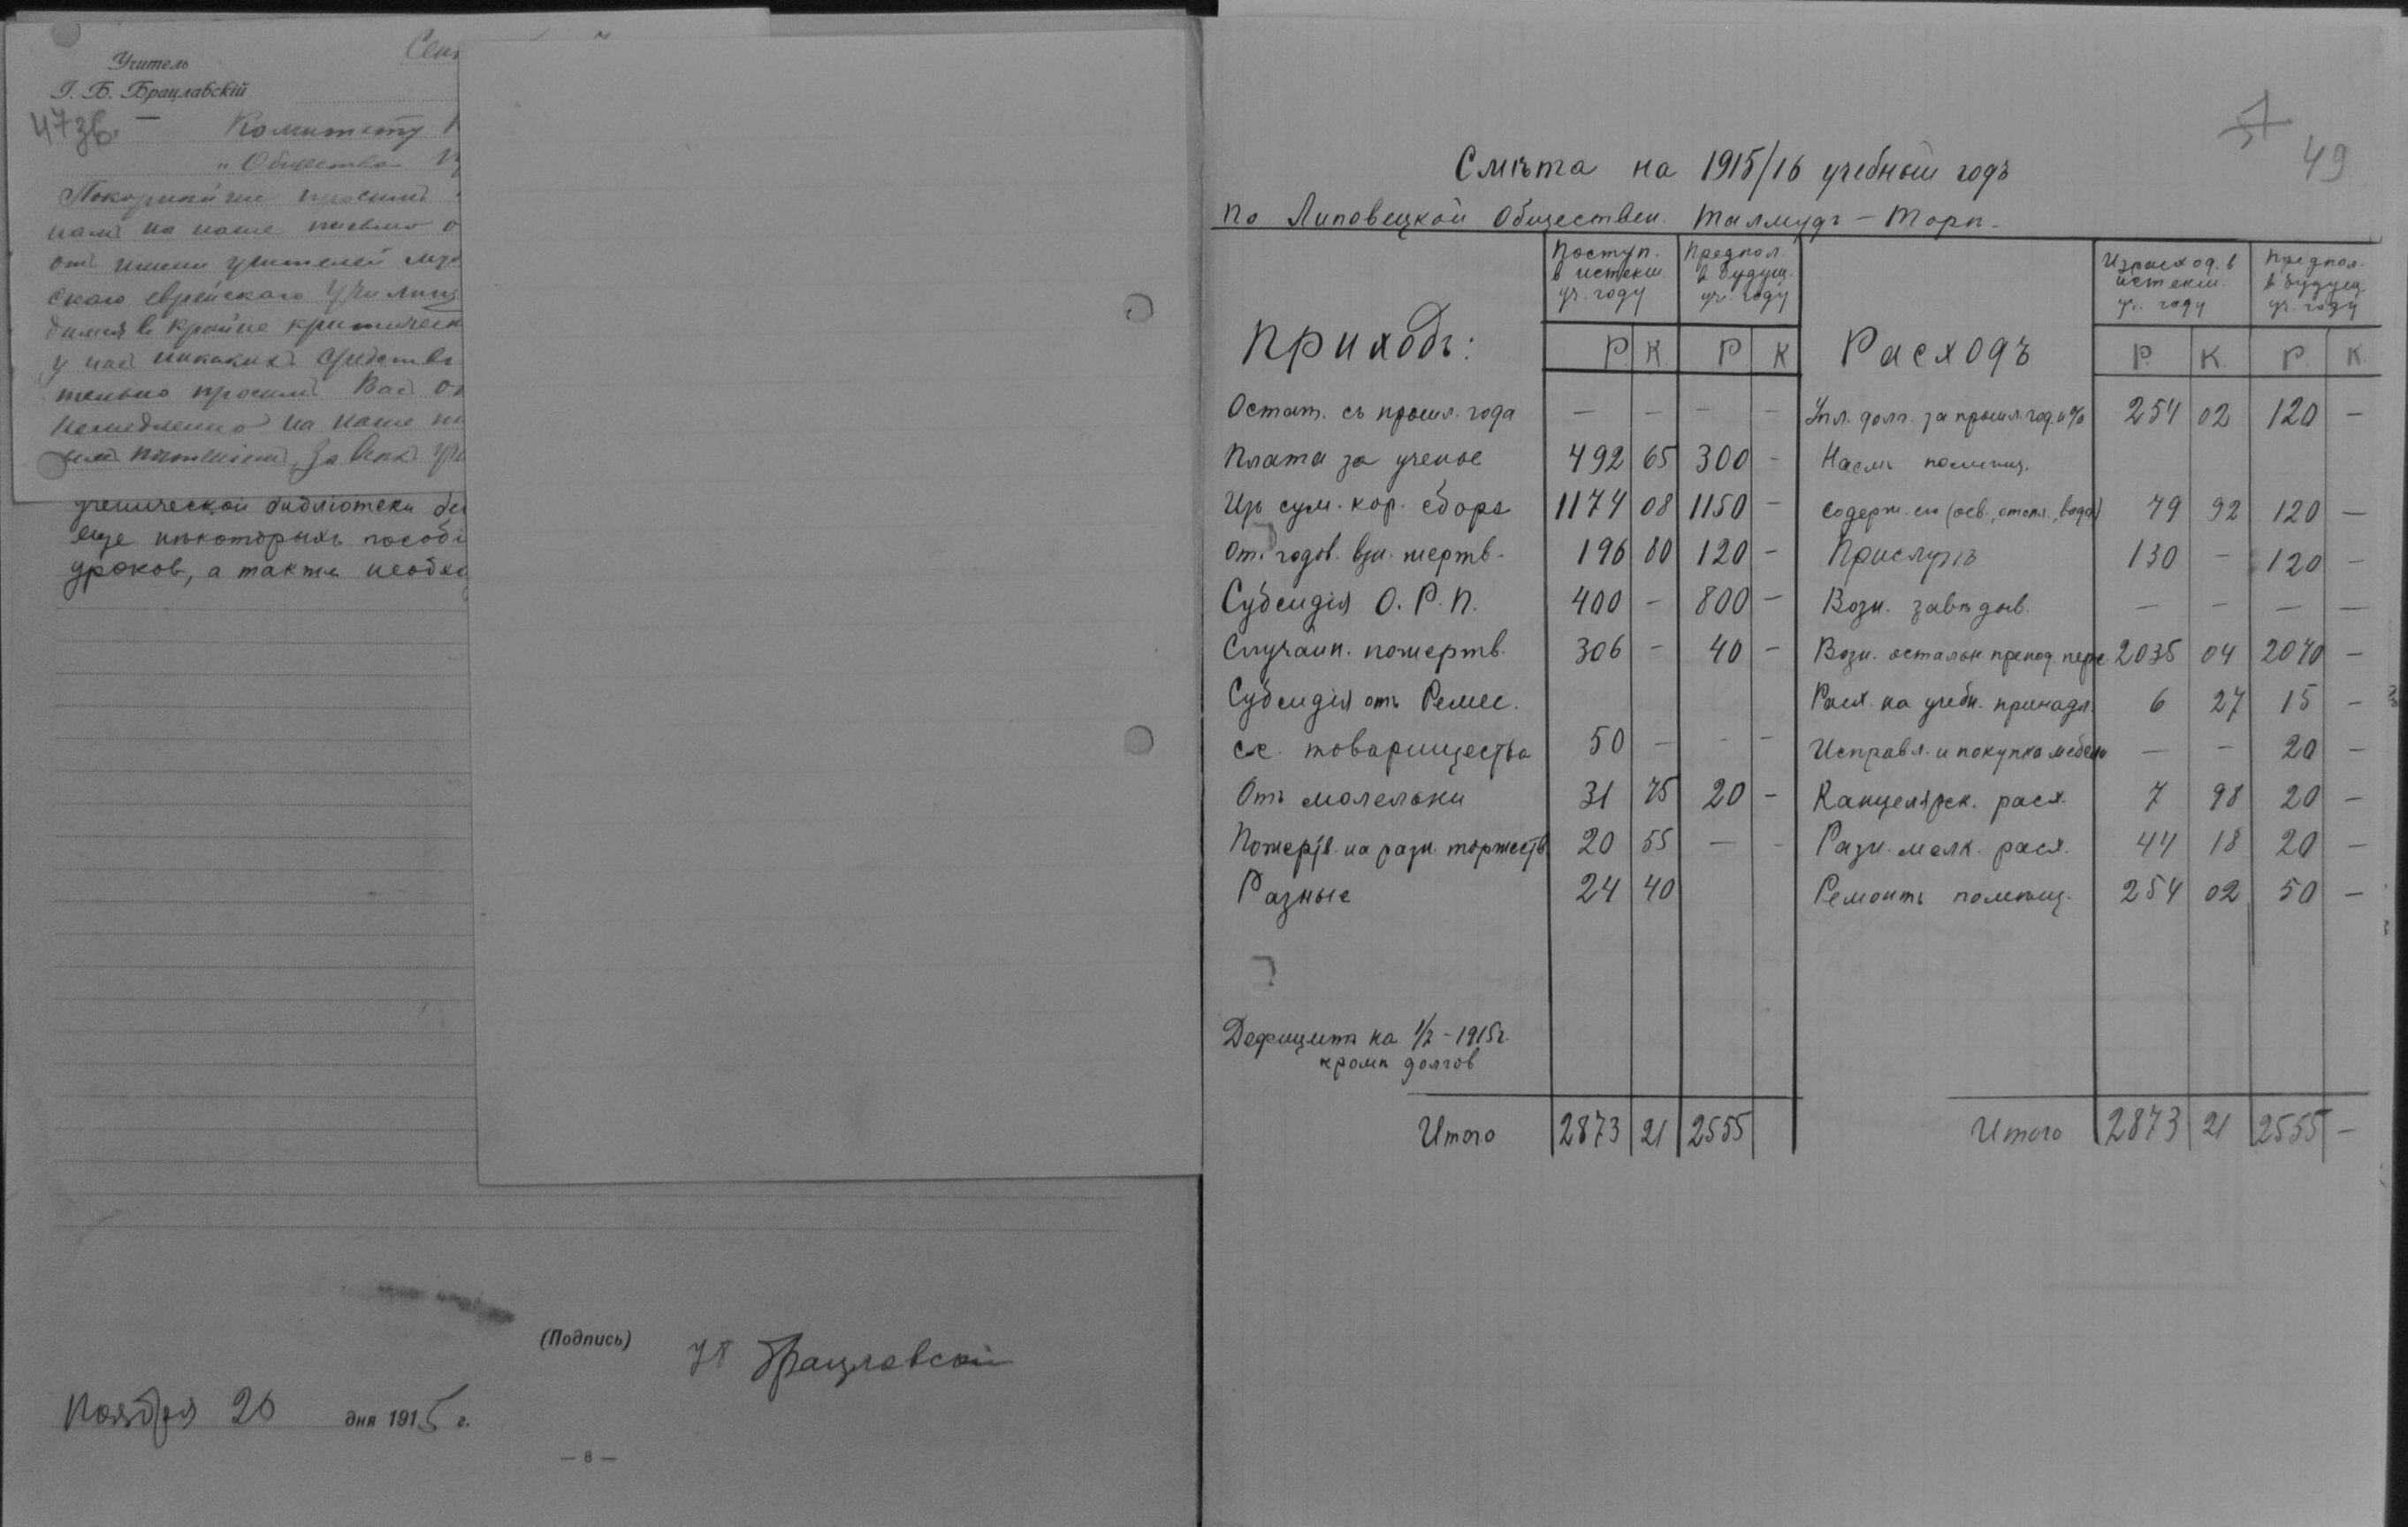 Учитель
I. Б. Брацлавскій
473б.
Комитету
„Общества
Покорнѣйше просимъ
намъ на наше письмо о
отъ имени учителей
скаго еврейскаго Училищ
димся въ крайне критическ
у насъ никакихъ средствъ
тельно просимъ Васъ
немедленно на наше
За всѣхъ
ученической библіотеки
еще нѣкоторыхъ пособі
уроков, а также необхо
(Подпись) Брацлавскій
Ноября 26 дня 1915 г.
— 8 —
49
Смѣта на 1915/16 учебный годъ
По Липовецкой Обществен. Талмудъ-Торѣ.
Приходъ: Поступ. в истекш. уч. году Р. К. Предпол. в будущ. уч. году Р. К Расходъ Израсход. в истекш. уч. году Р. К. Предпол. в будущ. уч. году Р. К
Остат. съ прошл. года — — — — Упл. долг. за прошл. год. и % 254 02 120 —
Плата за ученіе 492 65 300 - Наемъ помѣщ.
Изъ сум. кор. сбора 1174 08 1150 - Содерж. его (осв., отопл., вода) 79 92 120 —
От. годов. взн. жертв. 196 80 120 - Прислугѣ 130 - 120 —
Субсидія О. Р. П. 400 — 800 — Возн. завѣдыв. — — — —
Случайн. пожертв. 306 - 40 - Возн. остальн. препод. перс 2035 04 2070 —
Субсидія отъ Ремес. Расх. на учебн. принадл. 6 27 15 —
сс. товарищества 50 — - - Исправл. и покупка мебели — — 20 —
Отъ молельни 31 75 20 - Канцелярск. расх. 7 98 20 —
Пожертв. на разн. торжеств. 20 55 — - Разн. мелк. расх. 44 18 20 —
Разные 24 40 Ремонтъ помѣщ. 254 02 50 —
Дефицитъ на 1/2 - 1915г.
кромѣ долгов
Итого 2873 21 2555 Итого 2873 21 2555 —